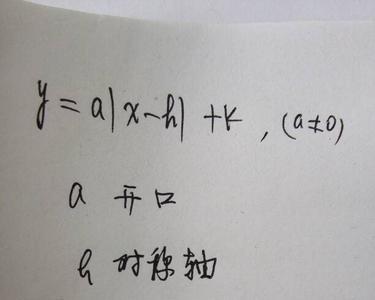 y=a|x-h|+k,(a≠0)
a 开口
h 对称轴